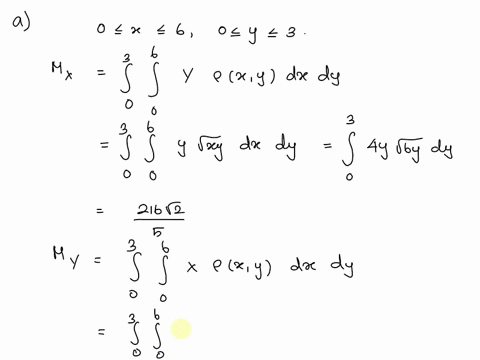 a) 0 ≤ x ≤ 6, 0 ≤ y ≤ 3.
M_x = ∫_0^3 ∫_0^6 y ρ(x,y) dx dy
= ∫_0^3 ∫_0^6 y √xy dx dy = ∫_0^3 4y √6y dy
= 216√2 / 5
M_y = ∫_0^3 ∫_0^6 x ρ(x,y) dx dy
= ∫_0^3 ∫_0^6